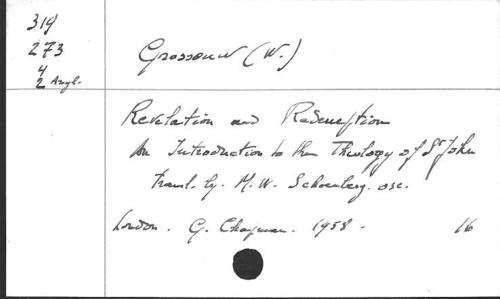 319
273
4
2 Angl.
Grossouw (W.)
Revelation and Redemption
An Introduction to the Theology of St John
Transl. by. M. W. Schoenberg. osc.
London. G. Chapman. 1958. 16